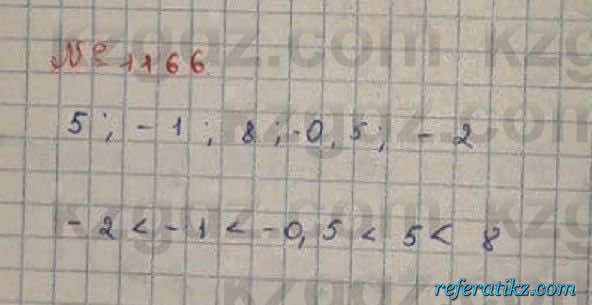 № 1166
5; -1; 8; -0,5; -2
-2 < -1 < -0,5 < 5 < 8
referatikz.com